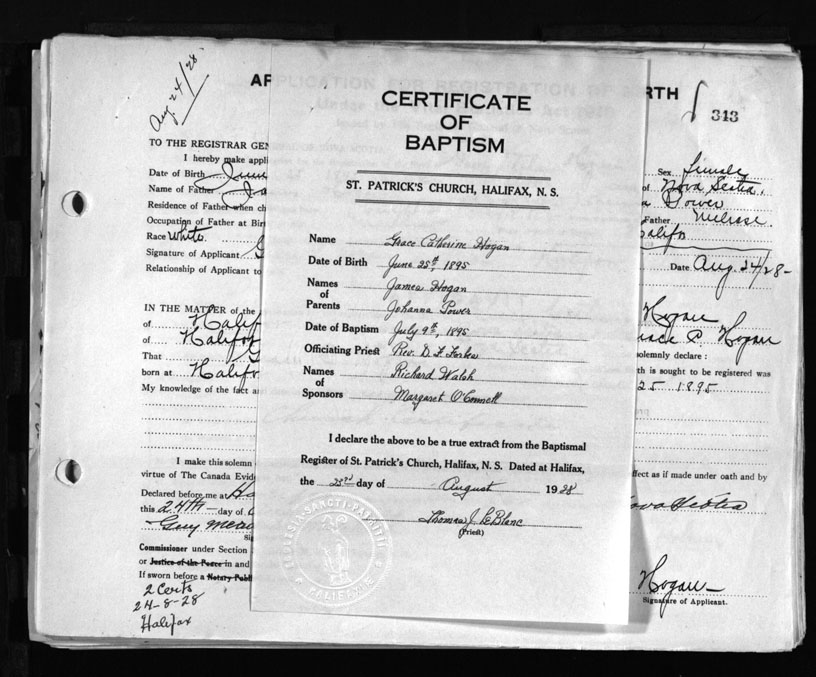 Aug 24/28
AP
RTH
343
CERTIFICATE
OF
BAPTISM
ST. PATRICK'S CHURCH, HALIFAX, N. S.
Name Grace Catherine Hogan
Date of Birth June 25th, 1895
Names of Parents James Hogan
Johanna Power
Date of Baptism July 9th, 1895
Officiating Priest Rev. D. F.
Names of Sponsors Richard Walsh
Margaret O'Connell
I declare the above to be a true extract from the Baptismal
Register of St. Patrick's Church, Halifax, N. S. Dated at Halifax,
the 23rd day of August 1928
Thomas J. LeBlanc
(Priest)
TO THE REGISTRAR GEN
I hereby make appli
Date of Birth June
Name of Father Ja
Residence of Father when ch
Occupation of Father at Bir
Race White.
Signature of Applicant G
Relationship of Applicant to
IN THE MATTER of the
of Halif
of Halifax
That G
born at Halifa
My knowledge of the fact an
I make this solemn
virtue of The Canada Evid
Declared before me at Ha
this 24th day of
Si
Commissioner under Section
or Justice of the Peace in and
If sworn before a Notary Publ
2 Certs
24-8-28
Halifax
Sex Female
of Nova Scotia.
a Power
Father Melrose.
Halifax
Date Aug. 24/28-
Hogan
Grace C Hogan
solemnly declare :
th is sought to be registered was
25 1895
ffect as if made under oath and by
Nova Scotia
Hogan
Signature of Applicant.